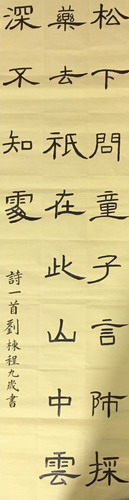 松下問童子言師採
藥去祇在此山中雲
深不知處
詩一首劉棟程九歲書